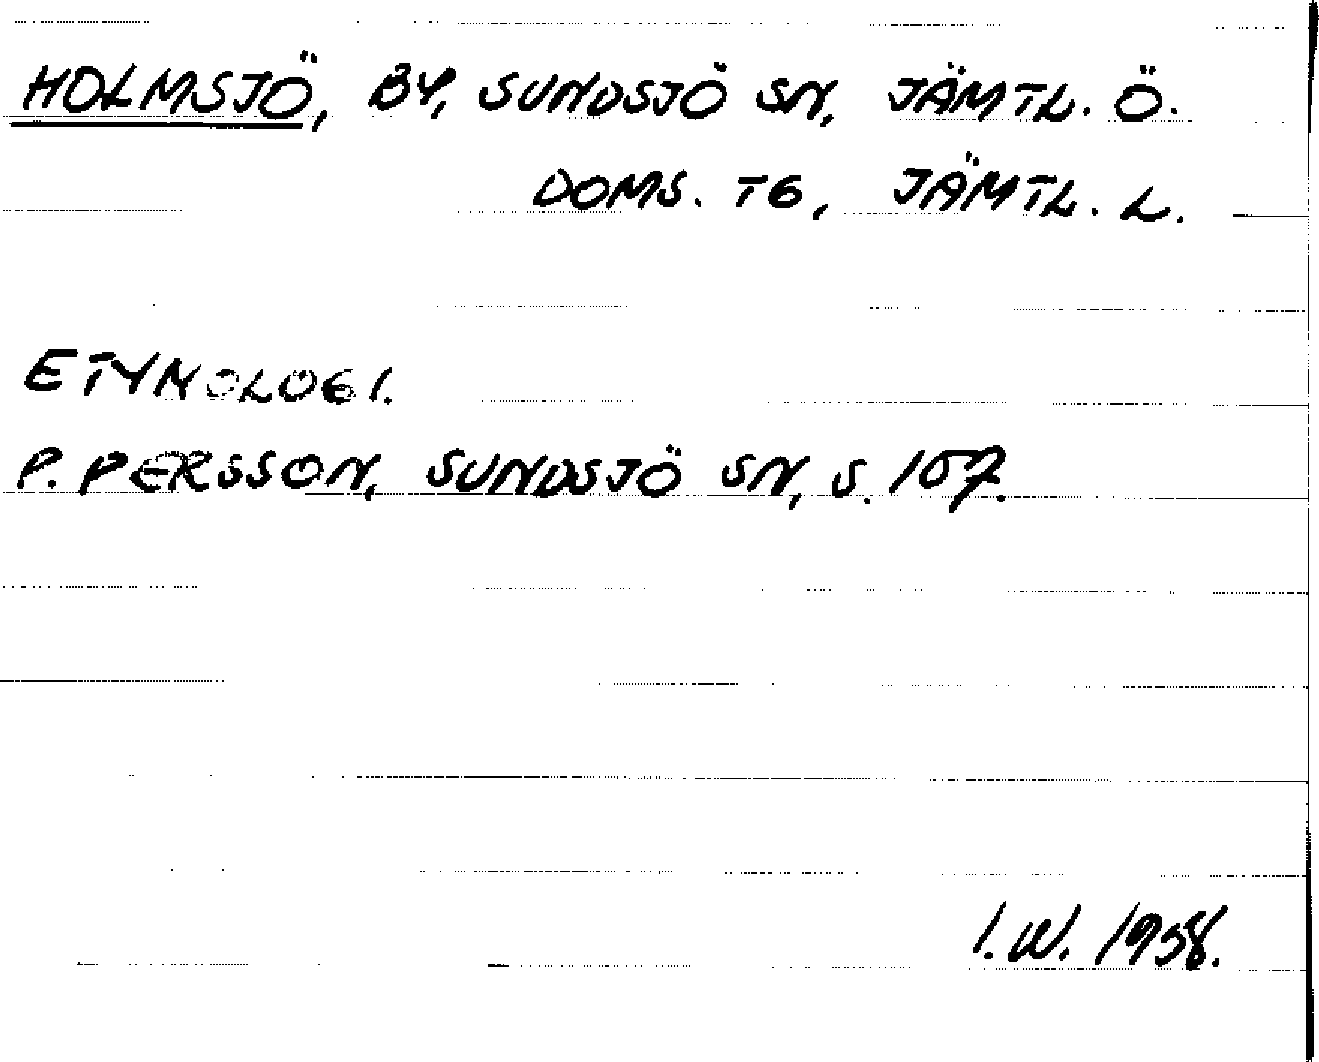 HOLMSJÖ, BY, SUNDSJÖ SN, JÄMTL. Ö.
DOMS. TG, JÄMTL. L.
ETYMOLOGI.
P. PERSSON, SUNDSJÖ SN, S. 157.
I.W. 1958.